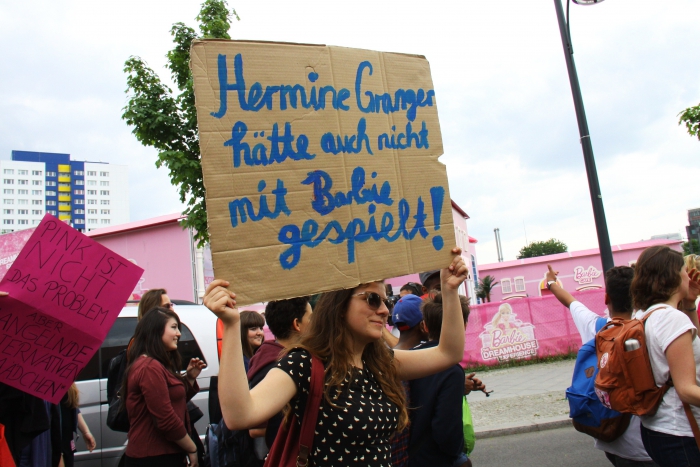 Hermine Granger
hätte auch nicht
mit Barbie
gespielt!
PINK IST
NICHT
DAS PROBLEM
ABER
Barbie
Barbie
DREAMHOUSE
EXPERIENCE